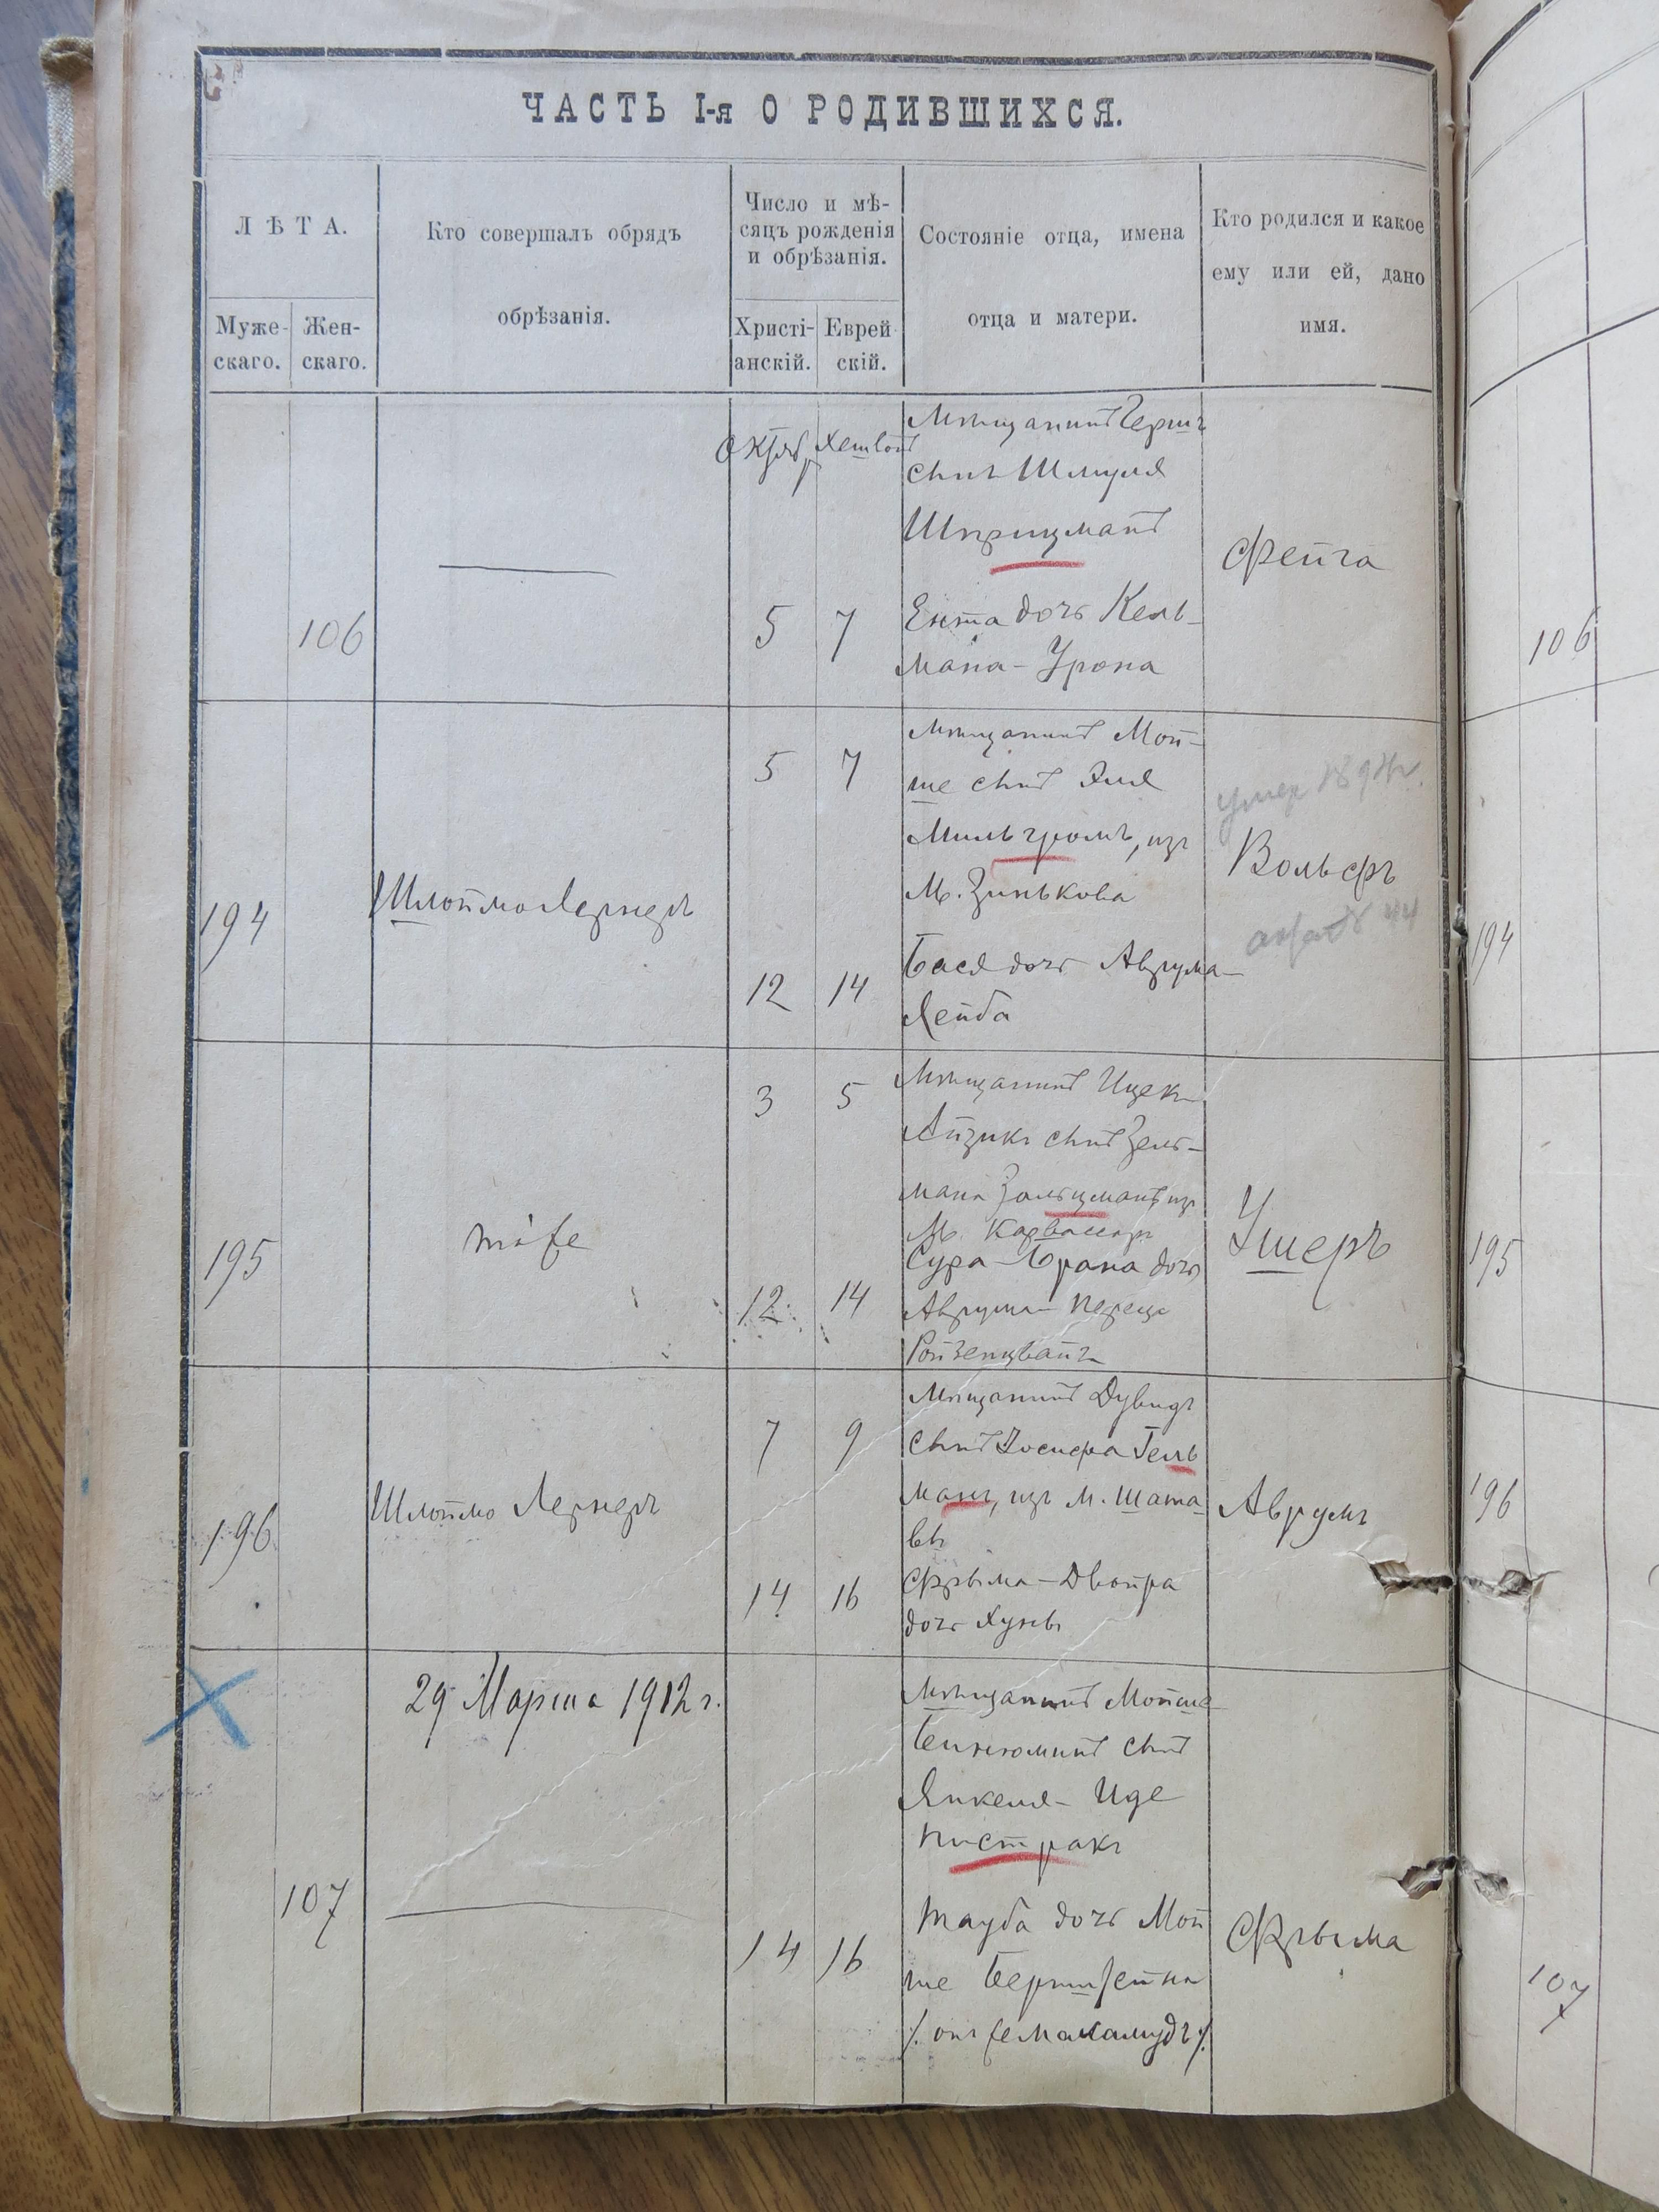 ЧАСТЬ I-я О РОДИВШИХСЯ.
ЛѢТА.
Муже-
скаго.
Жен-
скаго.
Кто совершалъ обрядъ
обрѣзанія.
Число и мѣ-
сяцъ рожденія
и обрѣзанія.
Христі-
анскій.
Еврей
скій.
Состояніе отца, имена
отца и матери.
Кто родился и какое
ему или ей, дано
имя.
106
Октяб
5
7
Мѣщанинъ Гершъ
сынъ Шмуля
Шприцманъ
Ента дочь Кель-
мана-Урона
Фейга
106
194
Шлоймо Лернеръ
5
7
12
14
Мѣщанинъ Мой-
ше сынъ Эля
Мильгромъ, изъ
М. Зинькова
Бася дочь Аврума-
Лейба
умер
Вольфъ
194
195
тоже
3
5
12
14
Мѣщанинъ Ицекъ
Айзикъ сынъ Зель-
мана Зальцманъ изъ
М.
Сура-Брана дочь
Аврума-Переца
Ройзенцвайгъ
Ушеръ
195
196
Шлоймо Лернеръ
7
9
14
16
Мѣщанинъ Дувидъ
сынъ Іосифа Гель
манъ, изъ м. Шата
вы
Фрыма-Двойра
дочь Хуны
Аврумъ
196
29 Марта 1912 г.
107
14
16
Мѣщанинъ Мойше
Бинюминъ сынъ
Янкеля-Иде
Пистракъ
Тауба дочь Мой
ше Берштейна
Фрыма
107